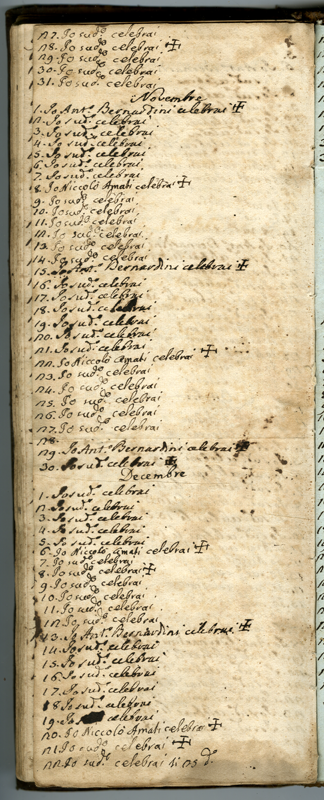 27. Io sud.º celebrai
28. Io sud.º celebrai ✠
29. Io sud.º celebrai
30. Io sud.º celebrai
31. Io sud.º celebrai
Novembre
1. Io Ant.º Bernardini celebrai ✠
2. Io sud.º celebrai
3. Io sud.º celebrai
4. Io sud.º celebrai
5. Io sud.º celebrai
6. Io sud.º celebrai
7. Io sud.º celebrai
8. Io Niccolò Amati celebrai ✠
9. Io sud.º celebrai
10. Io sud.º celebrai
11. Io sud.º celebrai
12. Io sud.º celebrai
13. Io sud.º celebrai
14. Io sud.º celebrai
15. Io Ant.º Bernardini celebrai ✠
16. Io sud.º celebrai
17. Io sud.º celebrai
18. Io sud.º celebrai
19. Io sud.º celebrai
20. Io sud.º celebrai
21. Io sud.º celebrai
22. Io Niccolò Amati celebrai ✠
23. Io sud.º celebrai
24. Io sud.º celebrai
25. Io sud.º celebrai
26. Io sud.º celebrai
27. Io sud.º celebrai
28.
29. Io Ant.º Bernardini celebrai ✠
30. Io sud.º celebrai ✠
Decembre
1. Io sud.º celebrai
2. Io sud.º celebrai
3. Io sud.º celebrai
4. Io sud.º celebrai
5. Io sud.º celebrai
6. Io Niccolò Amati celebrai ✠
7. Io sud.º celebrai
8. Io sud.º celebrai ✠
9. Io sud.º celebrai
10. Io sud.º celebrai
11. Io sud.º celebrai
12. Io sud.º celebrai
13. Io Ant.º Bernardini celebrai ✠
14. Io sud.º celebrai
15. Io sud.º celebrai
16. Io sud.º celebrai
17. Io sud.º celebrai
18. Io sud.º celebrai
19. Io celebrai
20. Io Niccolò Amati celebrai ✠
21. Io sud.º celebrai ✠
22. Io sud.º celebrai